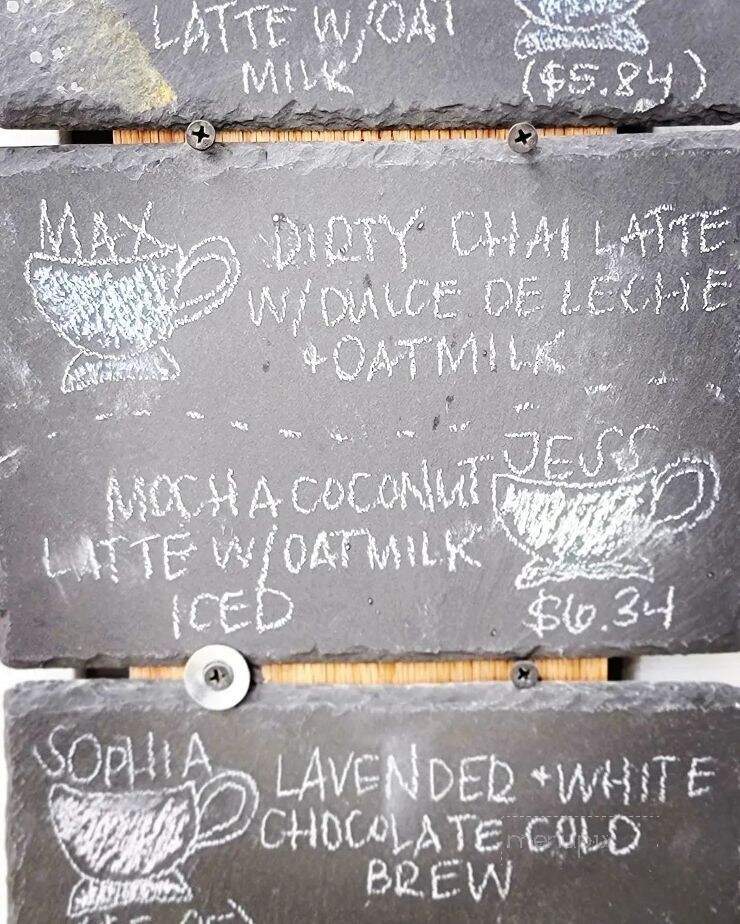 LATTE W/OAT
MILK
($5.84)
MAX
DIRTY CHAI LATTE
W/DULCE DE LECHE
+OATMILK
JESS
MOCHA COCONUT
LATTE W/OATMILK
ICED
$6.34
SOPHIA
LAVENDER + WHITE
CHOCOLATE COLD
BREW